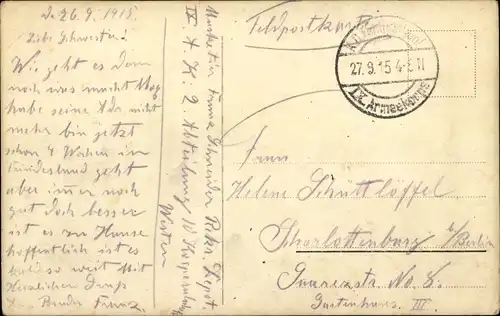 26. 9. 1915.
Liebe Schwester!
Wie geht es Dem
noch was macht Max
habe seine Adr. nicht
mehr bin jetzt
schon 4 Wochen im
geht
aber immer noch
gut Doch besser
ist es zu Hause
hoffentlich ist es
bald so weit Mit
Herzlichen Gruß
Bruder Franz.
Musketier Franz Rekr. Depot.
IV. A. K. 2. Abteilung IV Korporalsch.
Westen
Feldpostkarte
27.9.15 4-5 N
IV. Armeekorps
Frau
Helene Schüttlöffel
Charlottenburg b/Berlin
Suarezstr. No 8.
Gartenhaus III